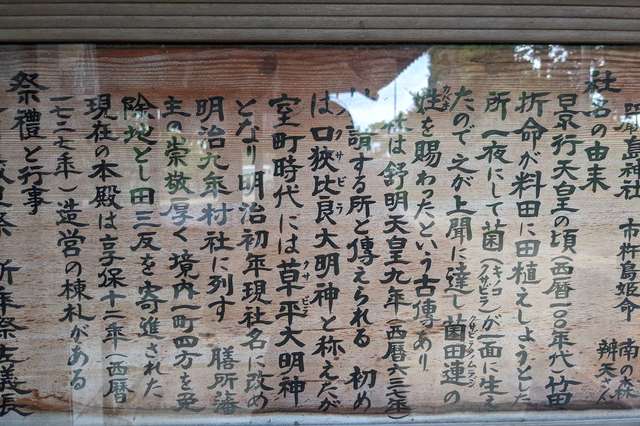 島神社 市杵島姫命 南の森 辨天さん
社名の由来
景行天皇の頃(西暦一〇〇年代)竹田
折命が料田に田植えしようとした
所 一夜にして菌(キノコ クサビラ)が一面に生え
たので之が上聞に達し菌田連の
姓を賜わったという古傳あり
は舒明天皇九年(西暦六三七年)
請する所と傳えられる 初め
は口狭比良大明神と称えたが
室町時代には草平大明神
となり明治初年現社名に改め
明治九年村社に列す 膳所藩
主の崇敬厚く境内一町四方を免
除地とし田三反を寄進された
現在の本殿は享保十二年(西暦
一七二七年)造営の棟札がある
祭禮と行事